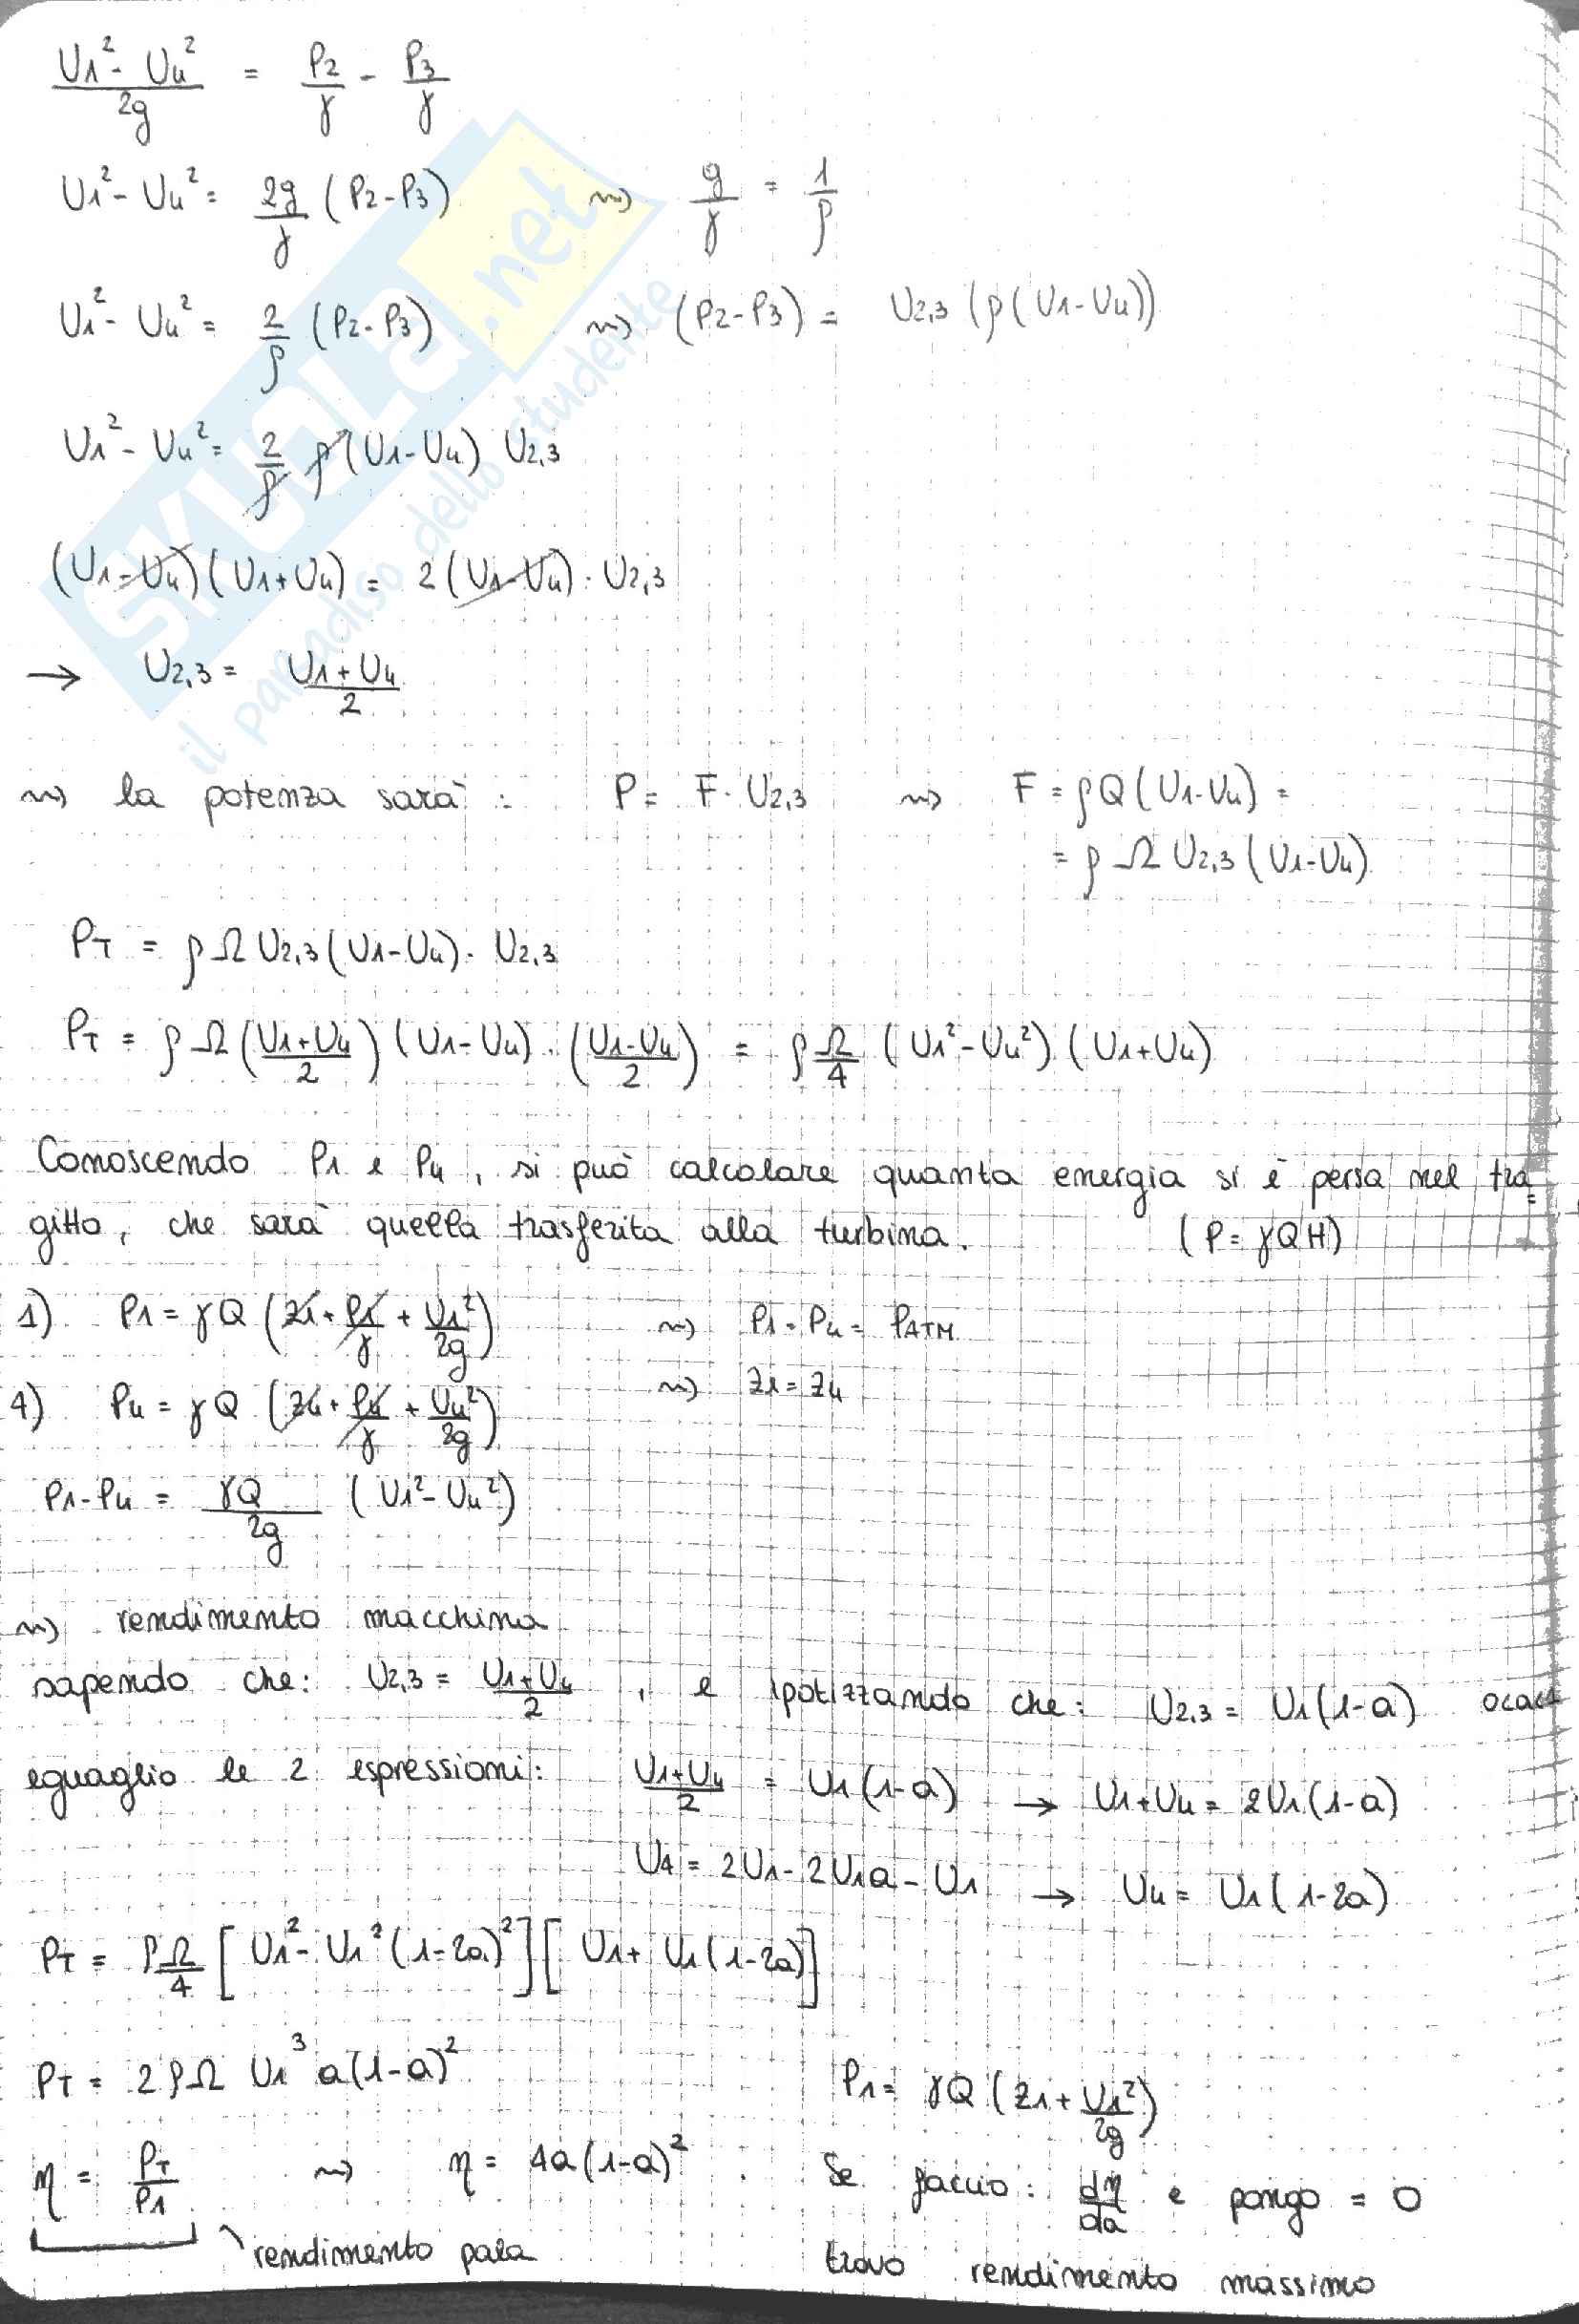 U1² - U4² / 2g = P2/γ - P3/γ
U1² - U4² = 2g/γ (P2-P3) ⇝ g/γ = 1/ρ
U1² - U4² = 2/ρ (P2-P3) ⇝ (P2-P3) = U2,3 (ρ(U1-U4))
U1² - U4² = 2/ρ ρ (U1-U4) U2,3
(U1-U4)(U1+U4) = 2(U1-U4) · U2,3
→ U2,3 = U1+U4 / 2
⇝ la potenza sarà : P = F · U2,3 ⇝ F = ρQ(U1-U4) =
= ρ Ω U2,3 (U1-U4)
PT = ρ Ω U2,3 (U1-U4) · U2,3
PT = ρ Ω (U1+U4 / 2) (U1-U4) · (U1-U4 / 2) = ρ Ω/4 (U1²-U4²) (U1+U4)
Conoscendo P1 e P4 , si può calcolare quanta energia si è persa nel tra
gitto, che sarà quella trasferita alla turbina. (P = γQH)
1) P1 = γQ (z1 + P1/γ + U1²/2g) ⇝ P1 = P4 = PATM
4) P4 = γQ (z4 + P4/γ + U4²/2g) ⇝ z1 = z4
P1-P4 = γQ/2g (U1²-U4²)
⇝ rendimento macchina
sapendo che: U2,3 = U1+U4 / 2 , e ipotizzando che: U2,3 = U1(1-a) 0<a<1
eguaglio le 2 espressioni: U1+U4 / 2 = U1(1-a) → U1+U4 = 2U1(1-a)
U4 = 2U1 - 2U1a - U1 → U4 = U1(1-2a)
PT = ρΩ/4 [U1² - U1²(1-2a)²][U1 + U1(1-2a)]
PT = 2ρΩ U1³ a(1-a)² P1 = γQ (z1 + U1²/2g)
η = PT/P1 ⇝ η = 4a(1-a)² . Se faccio: dη/da e pongo = 0
rendimento pala trovo rendimento massimo
SKUOLA.net
il paradiso dello studente